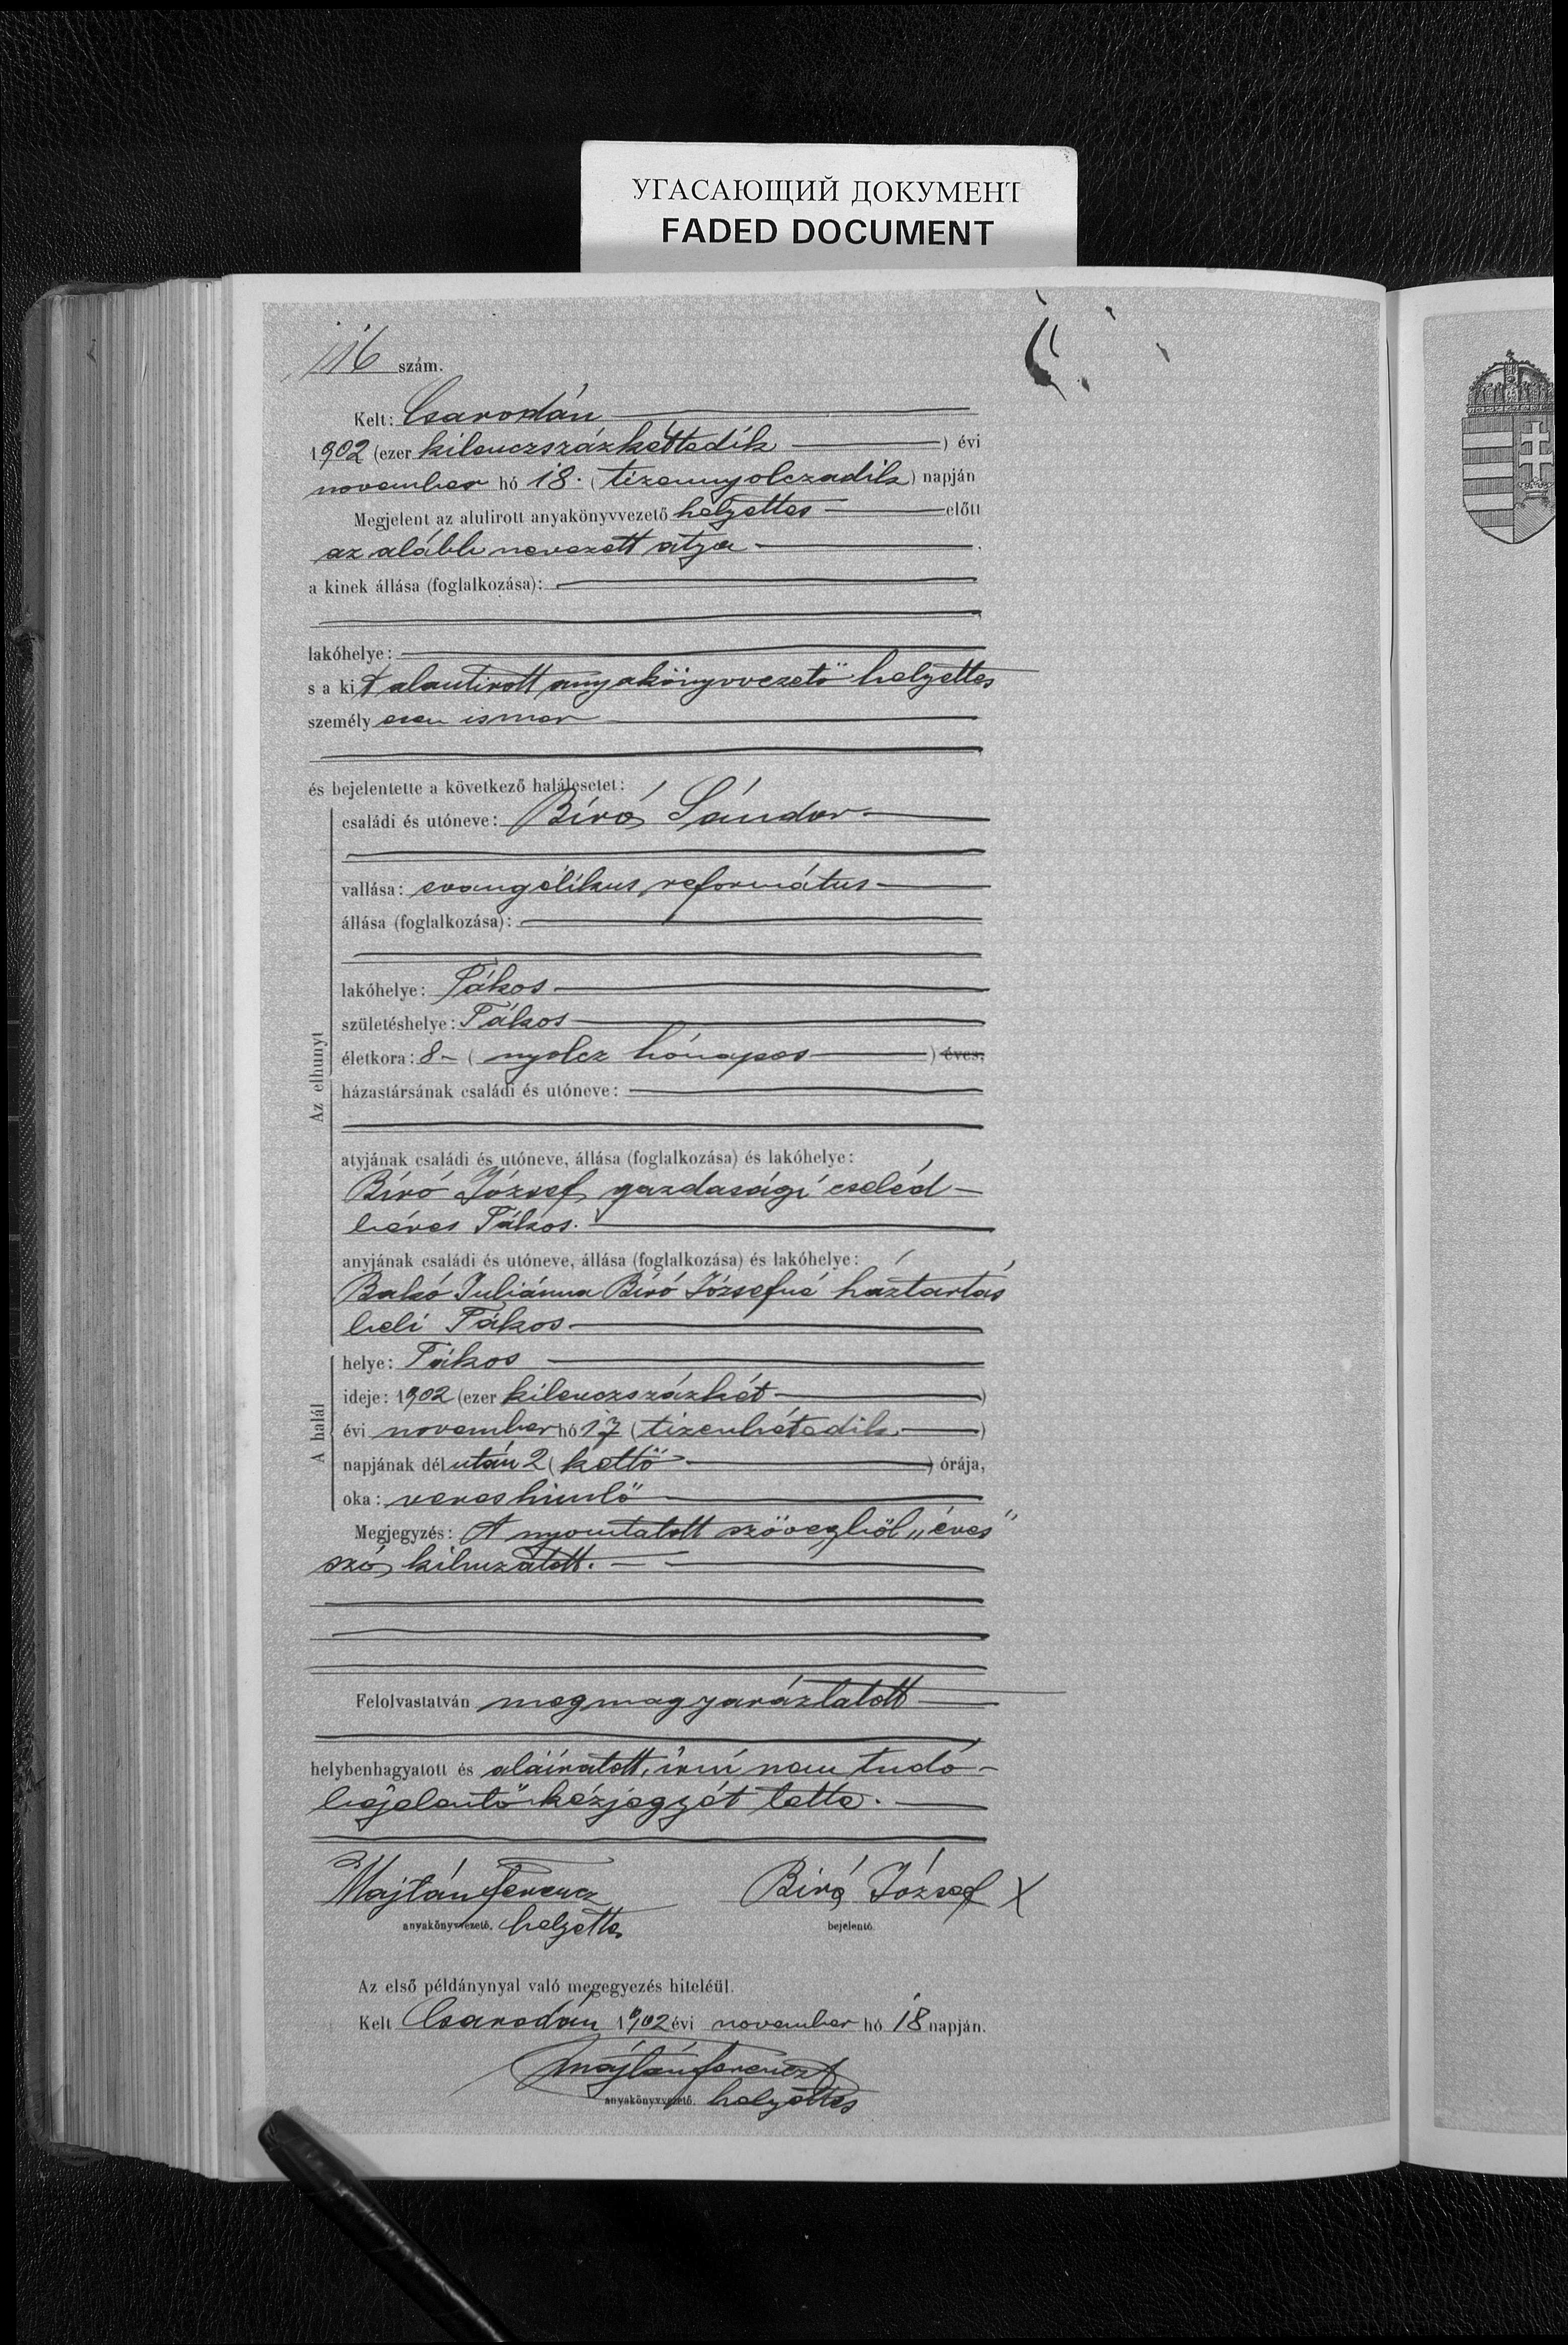 УГАСАЮЩИЙ ДОКУМЕНТ
FADED DOCUMENT
116 szám.
Kelt: Csarodán
1902 (ezer kilenczszázkettedik ) évi
november hó 18. (tizennyolczadik) napján
Megjelent az alulirott anyakönyvvezető helyettes előtt
az alább nevezett atya
a kinek állása (foglalkozása):
lakóhelye:
s a kit alantirott anyakönyvvezető helyettes
személyesen ismer
és bejelentette a következő halálesetet:
Az elhunyt
családi és utóneve: Bíró Sándor
vallása: evangélikus, református
állása (foglalkozása):
lakóhelye: Tákos
születéshelye: Tákos
életkora: 8 – (nyolcz hónapos ) éves;
házastársának családi és utóneve:
atyjának családi és utóneve, állása (foglalkozása) és lakóhelye:
Bíró József gazdasági cseléd
béres Tákos.
anyjának családi és utóneve, állása (foglalkozása) és lakóhelye:
Bakó Juliánna Bíró Józsefné háztartás
beli Tákos
A halál
helye: Tákos
ideje: 1902 (ezer kilenczszázkét )
évi november hó 17 (tizenhetedik )
napjának dél után 2 (kettő ) órája,
oka: veres himlő
Megjegyzés: A nyomtatott szövegből „éves"
szó kihuzatott.
Felolvastatván megmagyaráztatott
helybenhagyatott és aláiratott, irni nem tudó
bejelentő kézjegyét tette.
Majtán Ferencz Bíró József X
anyakönyvvezető. helyettes bejelentő.
Az első példánynyal való megegyezés hiteléül.
Kelt Csarodán 1902 évi november hó 18 napján.
Majtán Ferencz
anyakönyvvezető. helyettes